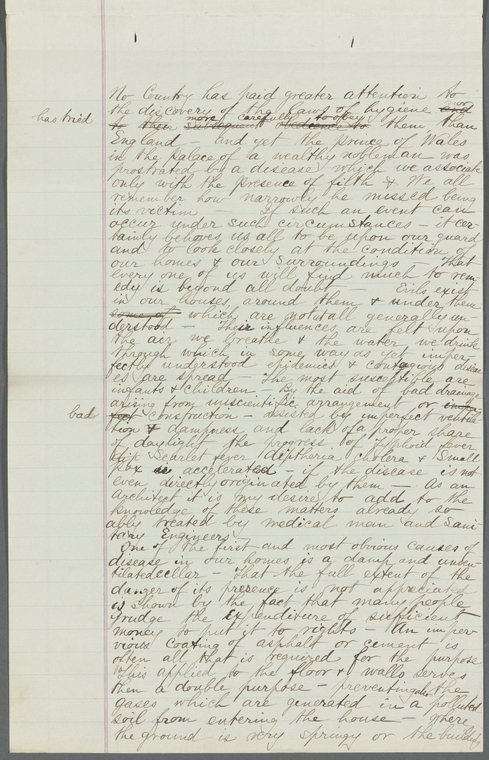 No Country has paid greater attention to
the discovery of the laws of hygiene nor
has tried more carefully to obey them, than
England - and yet the prince of Wales
in the palace of a wealthy nobleman was
prostrated by a disease which we associate
only with the presence of filth & We all
remember how narrowly he missed being
its victim - If such an event can
occur under such circumstances - it cer-
tainly behoves us all to be upon our guard
and to look closely at the condition of
our homes & our surroundings - That
every one of us will find much to rem-
edy is beyond all doubt - Evils exist
in our houses, around them & under them
which are not all generally un-
derstood - Their influences are felt upon
the air we breathe & the water we drink
through which in some way as yet imper-
fectly understood epidemics & contagious diseas
es are spread - The most susceptible are
infants & children - By the aid of bad drainage
arising from unscientific arrangement or
bad construction - assisted by imperfect ventila-
tion & dampness and lack of a proper share
of daylight the progress of Typhoid fever
Scarlet fever diptheria cholera & Small
pox is accelerated - if the disease is not
even directly originated by them - As an
Architect it is my desire to add to the
knowledge of these matters already so
ably treated by medical men and Sani
tary Engineers
One of the first and most obvious causes of
disease in our homes is a damp and unven-
tilated cellar - That the full extent of the
danger of its presence is not appreciated
is shown by the fact that many people
grudge the expenditure of sufficient
money to put it to rights - An imper-
vious coating of asphalt or cement is
often all that is required for the purpose
This applied to the floor & walls serves
then a double purpose - preventing the
gases which are generated in a polluted
soil from entering the house - Where
the ground is very springy or the building